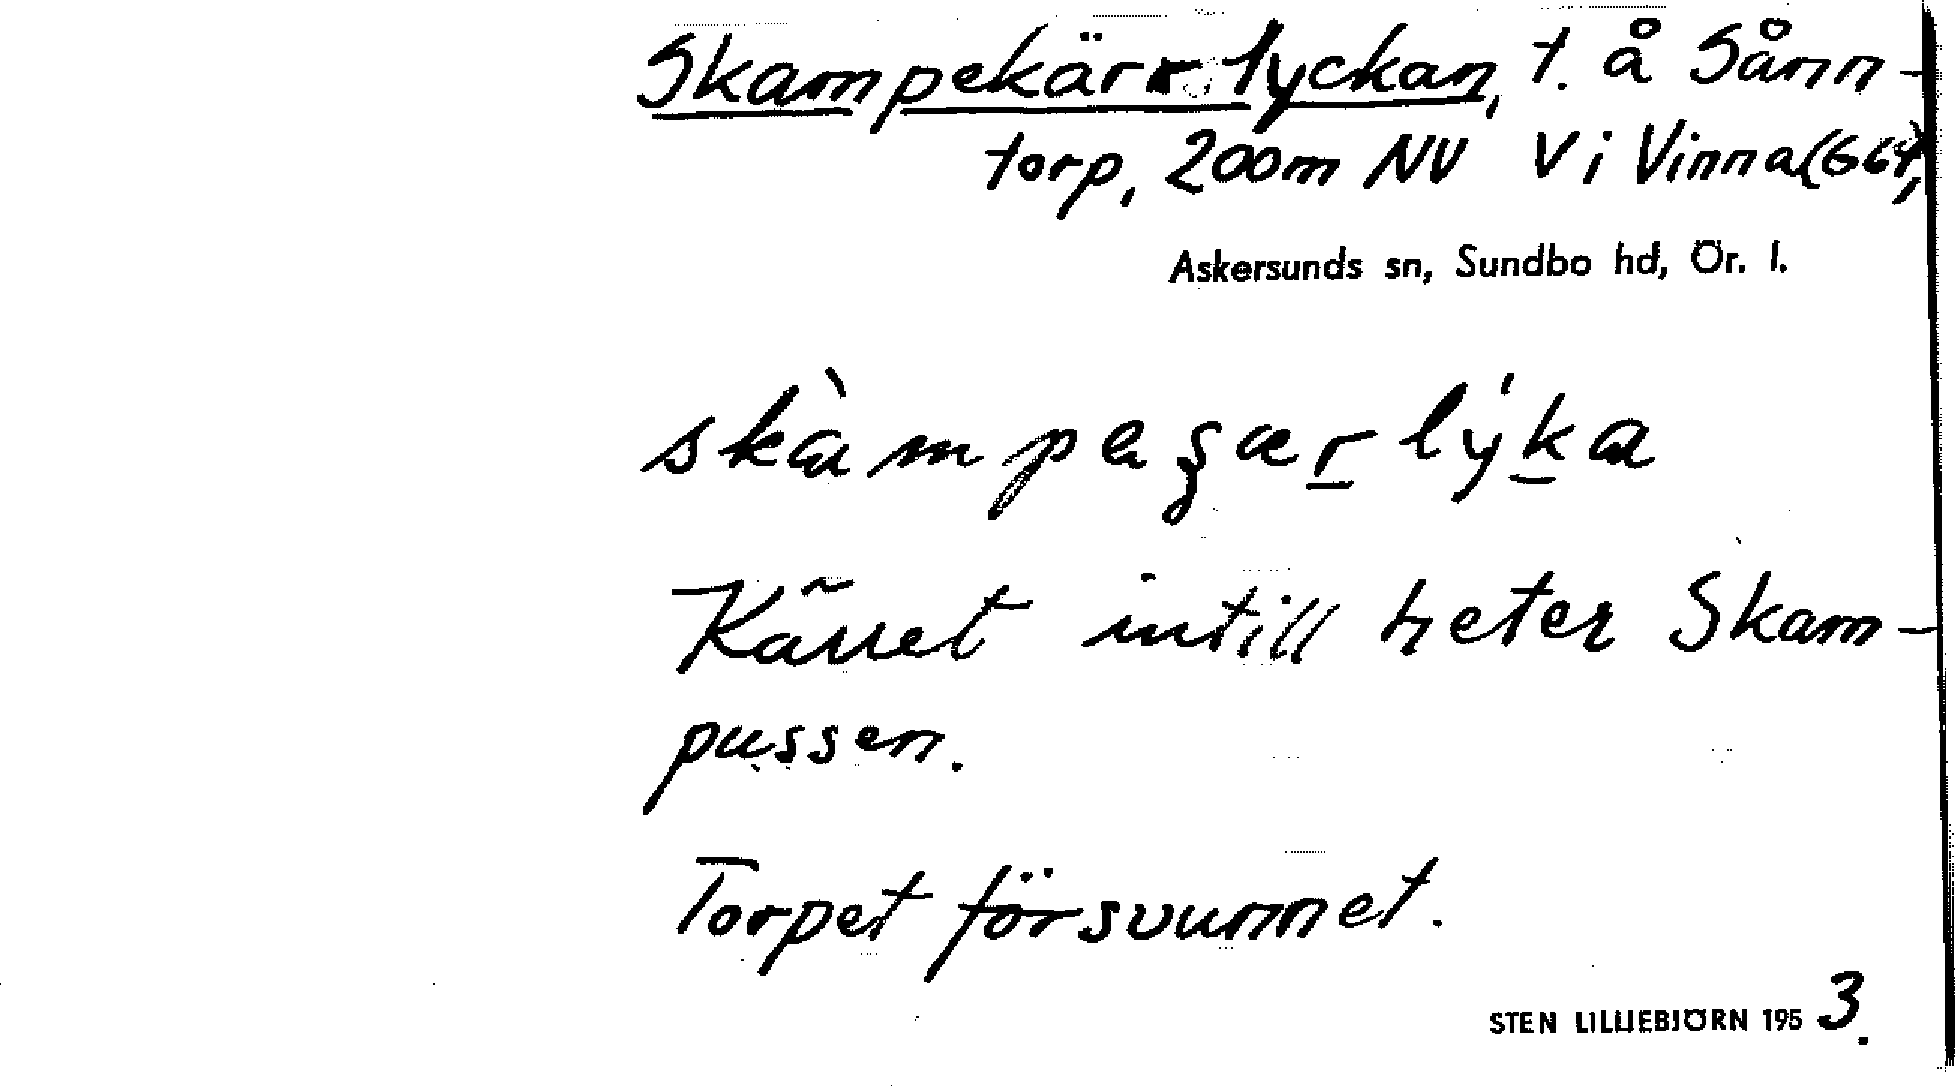 Skampekärrlyckan, t. å Sånn-
torp, 200m NV V i Vinna (G64),
Askersunds sn, Sundbo hd, Ör. l.
Kärret intill heter Skam-
pussen.
Torpet försvunnet.
STEN LILLIEBJÖRN 1953.